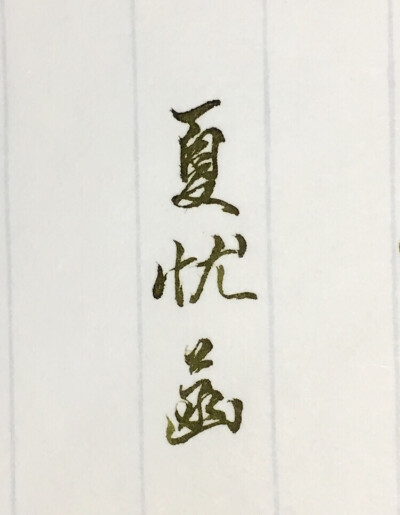 夏忧函